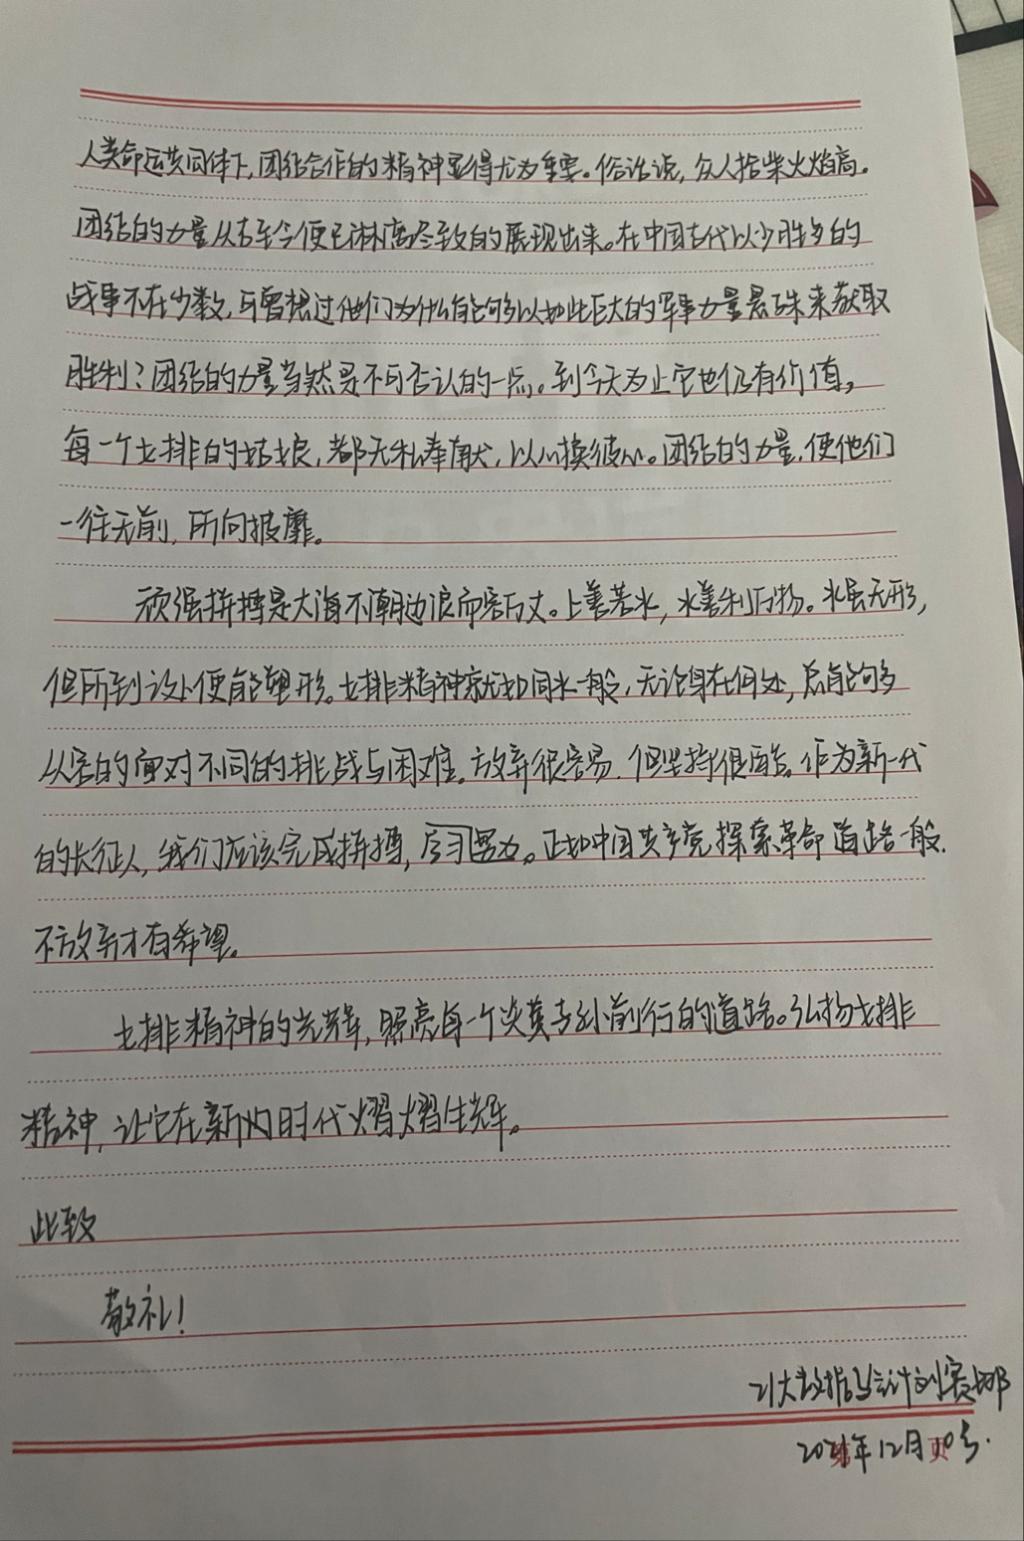 人类命运共同体下,团结合作的精神显得尤为重要。俗话说,众人拾柴火焰高。
团结的力量从古至今便已淋漓尽致的展现出来。在中国古代以少胜多的
战事不在少数,可曾想过他们为什么能够以如此巨大的军事力量悬殊来获取
胜利?团结的力量当然是不可否认的一点。到今天为止它也仍有价值,
每一个女排的姑娘,都无私奉献,以心换彼心。团结的力量,使他们
一往无前,所向披靡。
顽强拼搏是大海不潮边浪而容万丈。上善若水,水善利万物。水虽无形,
但所到之处便能塑形。女排精神就如同水一般,无论身在何处,总能够
从容的面对不同的挑战与困难。放弃很容易,但坚持很酷。作为新一代
的长征人,我们应该完成拼搏,学习努力。正如中国共产党探索革命道路一般,
不放弃才有希望。
女排精神的光辉,照亮每一个炎黄子孙前行的道路。弘扬女排
精神,让它在新的时代熠熠生辉。
此致
敬礼!
21大数据与会计刘
年12月10号.